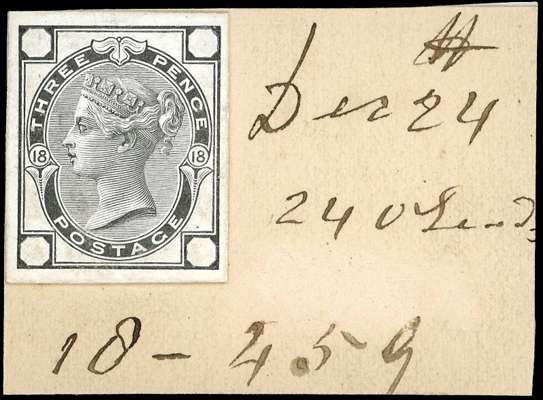 THREE PENCE
18 18
POSTAGE
Dec 24
240 Leads
18 - 459